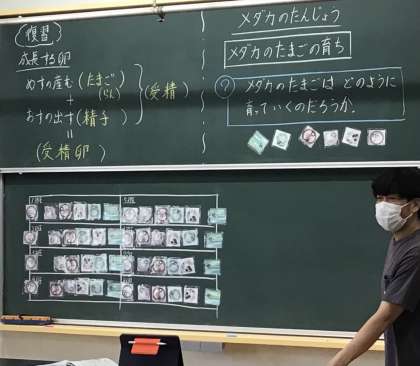 (復習)
成長する卵
めすの産む(たまご(らん))
+
おすの出す(精子)
=
(受精卵)
(受精)
メダカのたんじょう
メダカのたまごの育ち
? メダカのたまごは どのように
育っていくのだろうか。